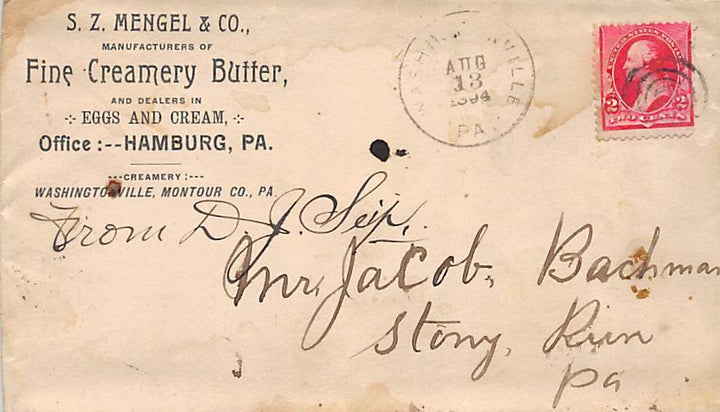 S. Z. MENGEL & CO.,
MANUFACTURERS OF
Fine Creamery Butter,
AND DEALERS IN
EGGS AND CREAM,
Office :--HAMBURG, PA.
---CREAMERY:---
WASHINGTONVILLE, MONTOUR CO., PA.
WASHINGTONVILLE
AUG
13
1894
PA.
UNITED STATES POSTAGE
2 2
TWO CENTS
From D. J. Seip,
Mr. Jacob, Bachman
Stony, Run
Pa